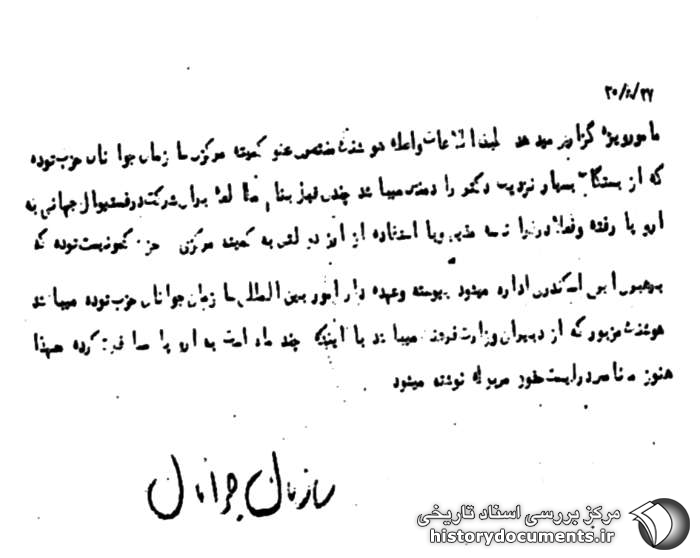 ۲۰/۸/۲۷
مامور ویژه گزارش میدهد طبق اطلاعات واصله هوشنگ منتصری عضو کمیته مرکزی سازمان جوانان حزب توده
که از بستگان بسیار نزدیک دکتر رادمنش میباشد چندی قبل بنام برای شرکت در فستیوال جهانی به
اروپا رفته و فعلا در فرانسه مقیم و با استفاده از ارز دولتی به کمیته مرکزی حزب کمونیست توده که
برهبری ایرج اسکندری اداره میشود پیوسته و عهده دار امور بین المللی سازمان جوانان حزب توده میباشد
هوشنگ مزبور که از دبیران وزارت فرهنگ میباشد با اینکه چند ماه است به اروپا مسافرت کرده معهذا
هنوز نامبرده در لیست حقوق مربوطه نوشته میشود
سازمان جوانان
مرکز بررسی اسناد تاریخی
historydocuments.ir